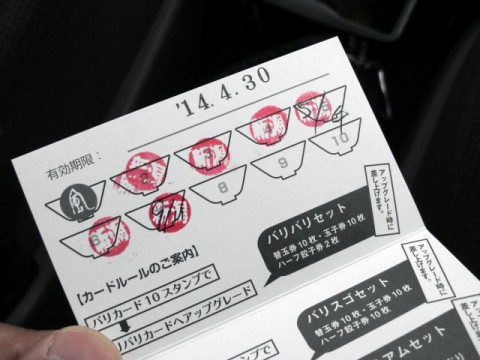 有効期限：'14.4.30
風
5/6
6
9/11
8
9
10
【カードルールのご案内】
バリカード10スタンプで
バリバリカードへアップグレード
バリバリセット
替玉券10枚・玉子券10枚
ハーフ餃子券2枚
アップグレード時に
差し上げます。
バリスゴセット
替玉券10枚・玉子券10枚
ハーフ餃子券10枚
アップグレード時に
差し上げます。
スタンプで
アムセット